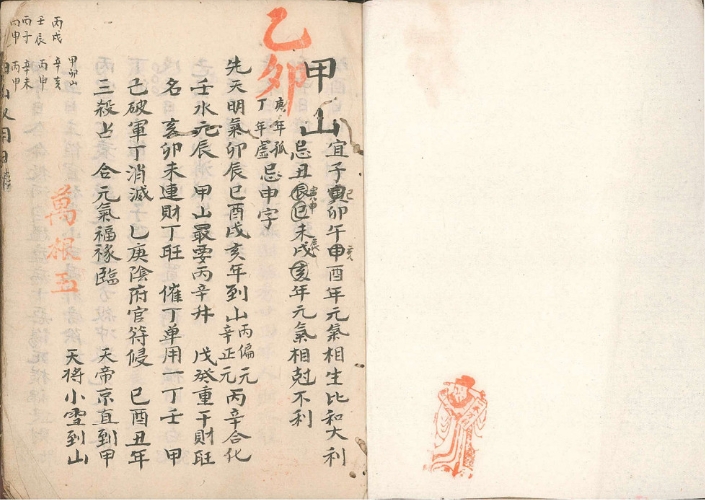 乙卯
甲山
宜子寅卯午申酉年元氣相生比和大利
巳
亥
忌丑辰巳未戌亥年元氣相尅不利
寅申
辰
庚年孤
丁年虛
忌申字
先天明氣卯辰巳酉戌亥年到山丙偏元丙辛合化
辛正元
壬水元辰 甲山最要丙辛升 戊癸重干財旺
名亥卯未連財丁旺 催丁单用一丁壬 甲
己破軍丁消滅 乙庚陰府官符侵 巳酉丑年
三殺占 合元氣福祿臨 天帝京直到甲
天将小雪到山
萬根玉
甲卯山
丙戌 辛亥
壬辰 丙申
丙子 辛未
丙申 丙申